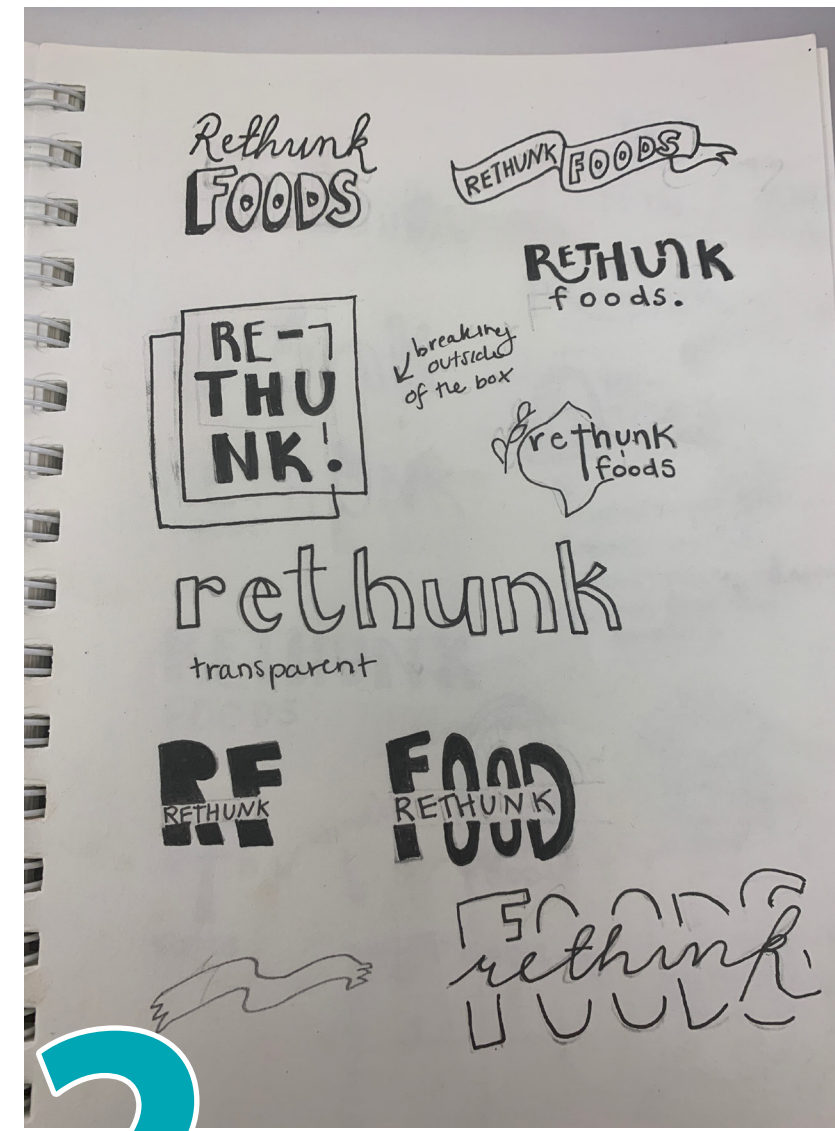 Rethunk
FOODS
RETHUNK FOODS
RETHUNK
foods.
RE-
THU
NK!
breaking
outside
of the box
rethunk
foods
rethunk
transparent
RF
RETHUNK
FOOD
RETHUNK
FOODS
rethink
2